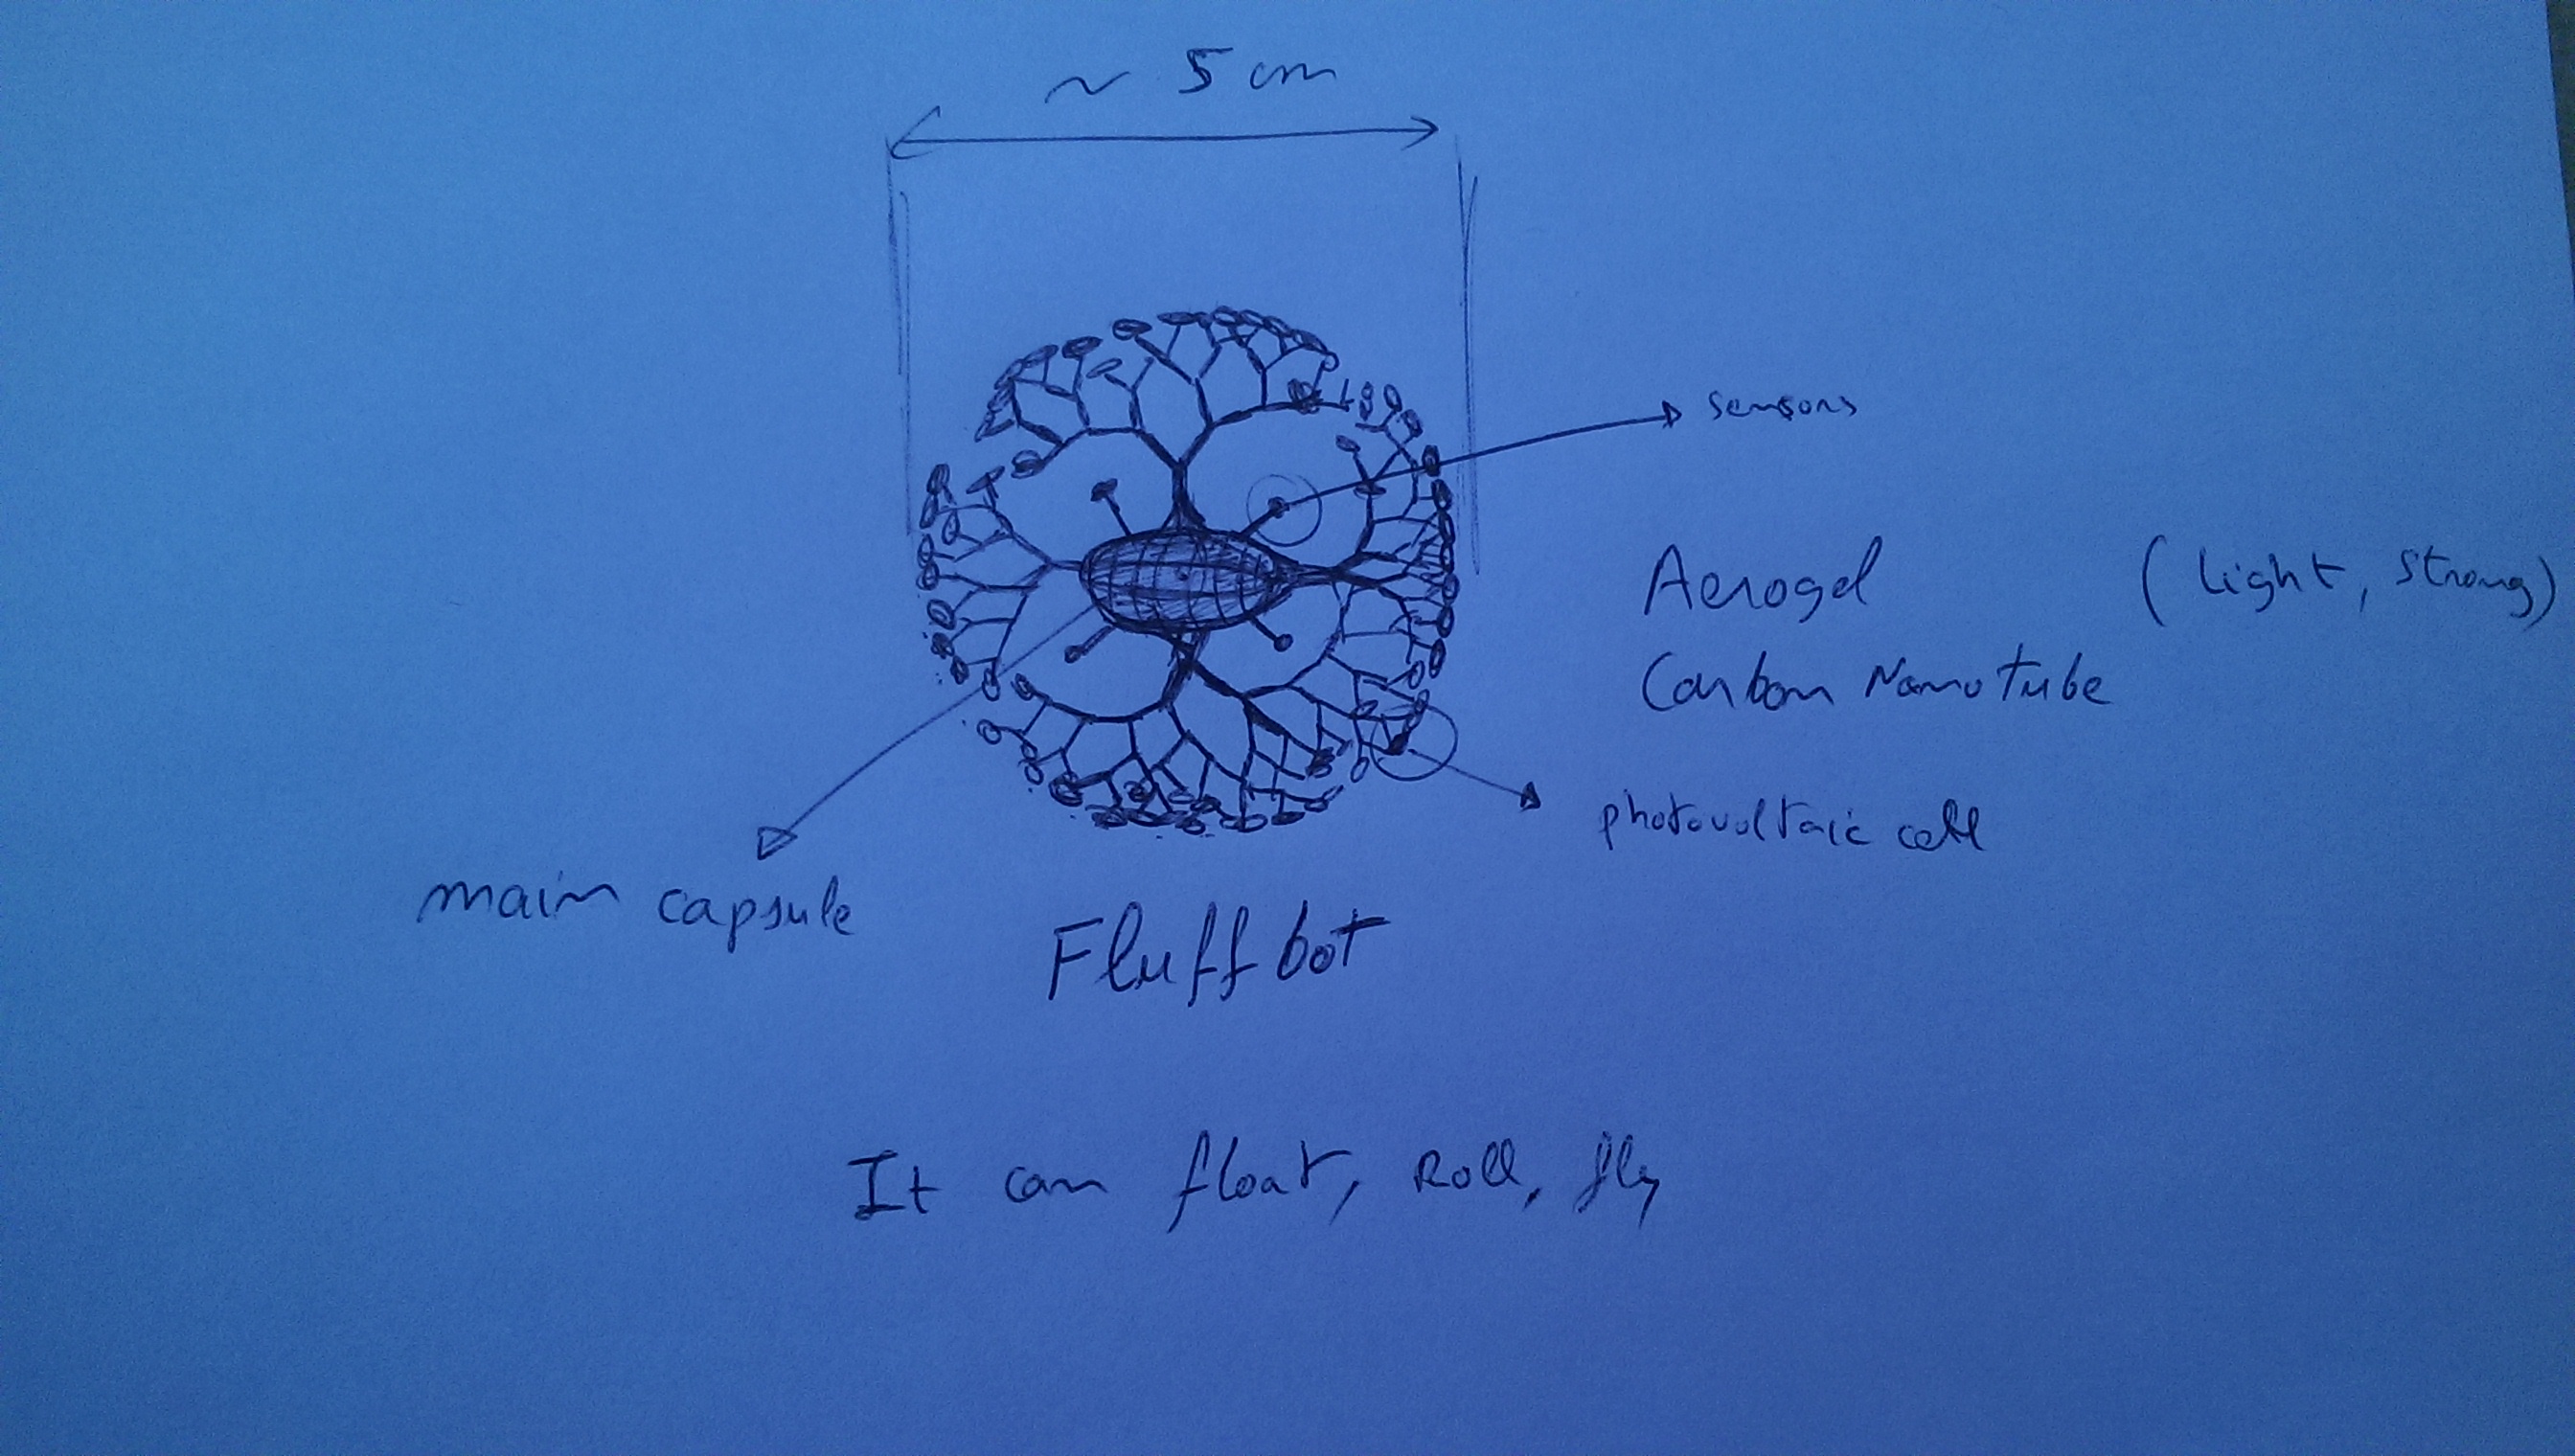 ~ 5 cm
sensors
Aerogel (light, strong)
Carbon Nanotube
photovoltaic cell
main capsule
Fluffbot
It can float, Roll, fly